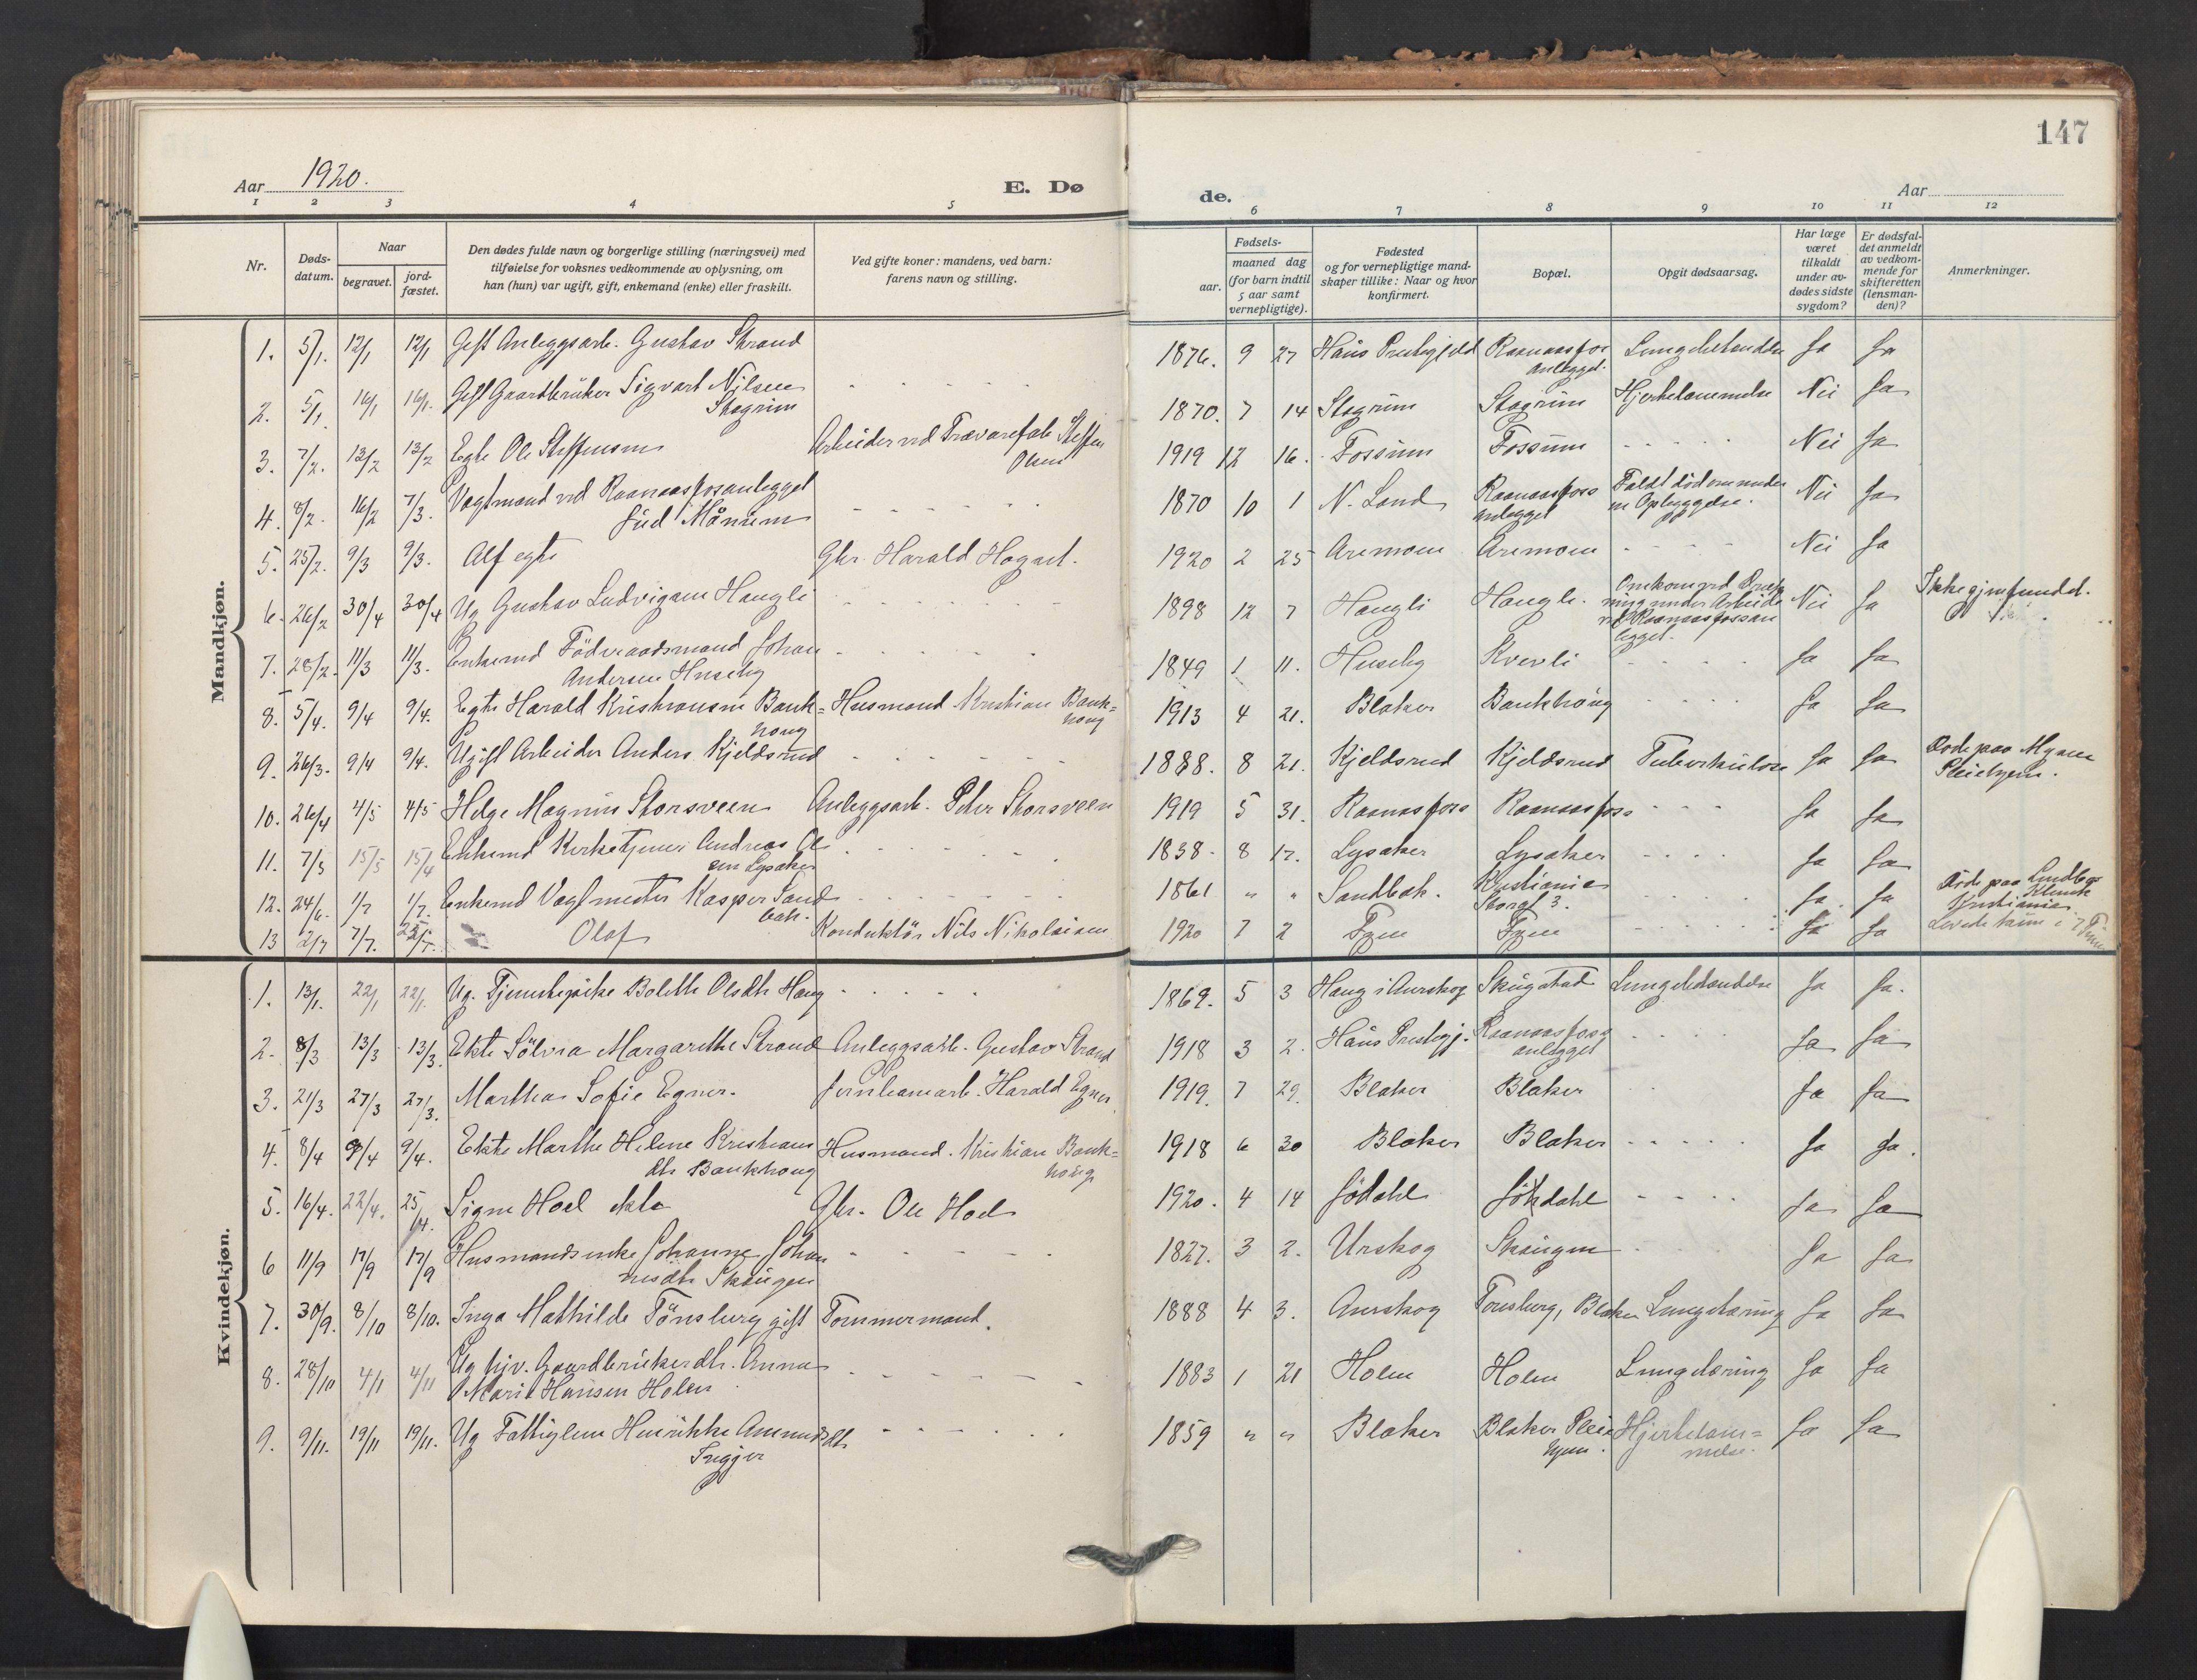 147
Aar 1920.
E. Dø
de.
Aar
1 2 3 4 5 6 7 8 9 10 11 12
Nr.
Døds-
datum.
Naar
begravet.
jord-
fæstet.
Den dødes fulde navn og borgerlige stilling (næringsvei) med
tilføielse for voksnes vedkommende av oplysning, om
han (hun) var ugift, gift, enkemand (enke) eller fraskilt.
Ved gifte koner: mandens, ved barn:
farens navn og stilling.
Fødsels-
aar.
maaned dag
(for barn indtil
5 aar samt
vernepligtige).
Fødested
og for vernepligtige mand-
skaper tillike: Naar og hvor
konfirmert.
Bopæl.
Opgit dødsaarsag.
Har læge
været
tilkaldt
under av-
dødes sidste
sygdom?
Er dødsfal-
det anmeldt
av vedkom-
mende for
skifteretten
(lensman-
den)?
Anmerkninger.
Mandkjøn.
1. 5/1. 12/1 12/1 Gift Anleggsarb. Gustav Strand 1876. 9 27 Haus Prestegjeld Raanaasfos Lungebetendelse Ja Ja
anlegget.
2. 5/1. 16/1 16/1. Gift Gaardbruker Sigvart Nilsen - - - - - 1870. 7 14 Stogrim Stogrim Hjertelammelse Nei Ja
Stogrim
3. 7/2. 13/2 13/2 Egte Ole Steffensen Arbeider ved Trævarefab. Steffen 1919 12 16. Fossum Fossum - - - - Nei Ja
Olsen
4. 8/2. 16/2 7/3. Vagtmand ved Raanaasfosanlegget - - - - - 1870 10 1 N. Land Raanaasfoss Faldt død om under Nei Ja
anlegget en Opleggelse.
5. 25/2. 9/3 9/3. Alf egte Gbr. Harald Hogset. 1920 2 25 Aremoen Aremoen - - - - Nei Ja
6. 26/2 30/4 30/4 Ug Gustav Ludvigsen Haugli - - - - - 1898 12 7 Haugli Haugli. Omkom ved Drukning under Arbeide Nei Ja Ikke gjenfundet.
ved Raanaasfossan
legget.
7. 28/2. 11/3 11/3. Enkemd Födraadsmand Johan - - - - - 1849 1 11. Huseby Kverli - - - - Ja Ja
Andersen Huseby
8. 5/4. 9/4 9/4. Egte Harald Kristiansen Bank= Husmand Kristian Bank= 1913 4 21. Blaker Bankhaug - - - - Ja Ja
haug haug
9. 26/3. 9/4 9/4. Ugift Arbeider Anders Kjeldsrud - - - - - 1888. 8 21. Kjeldsrud Kjeldsrud Tuberkulose Ja Ja Døde paa Myaen
Pleiehjem.
10. 26/4 4/5 4/5 Helge Magnus Storsveen Anleggsarb. Peter Storsveen 1919 5 31. Raanaasfoss Raanaasfoss - - - Ja Ja
11. 7/5 15/5 15/4 Enkemd Kirketjener Andreas Ol - - - - - 1838. 8 17. Lysaker Lysaker - - - - Ja Ja
sen Lysaker
12. 24/6. 1/7 1/7. Enkemd Vagtmester Kasper Sand - - - - - 1861 " " Sandbak. Kristiania - - - - Ja. Ja Døde paa Lundbys
bak. Storgt 3. Klinik
Kristiania.
13 2/7 7/7. 25/7. Olaf Konduktör Nils Nikolaisen 1920 7 2 Fyen Fyen - - - - Ja Ja Levede kun i 7 Timer
Kvindekjøn.
1. 13/1. 22/1 22/1. Ug. Tjenestepike Bolette Olsdtr Haug - - - - - 1869. 5 3 Haug i Aurskog Skugstad Lungebetendelse Ja Ja.
2. 8/3 13/3 13/3. Ekte Sölvia Margarethe Strand Anleggsarb. Gustav Strand 1918 3 2. Haus Prestegj. Raanaasfoss - - - - Ja Ja
anlegget
3. 21/3 27/3 27/3. Martha Sofie Egner. Jernbanearb. Harald Egner. 1919. 7 29. Blaker Blaker Ja Ja
4. 8/4 9/4 9/4. Ekte Marthe Helene Kristians Husmand. Kristian Bank= 1918 6 30 Blaker Blaker - - - - Ja Ja.
dtr Bankhaug haug
5. 16/4. 22/4. 25/4. Signe Hoel ekte Gbr. Ole Hoel 1920. 4 14 Jödahl Jökdahl - - - - Ja Ja
6 11/9 17/9 17/9 Husmandsenke Johanne Johan - - - - - 1827. 3 2. Urskog Skaugen - - - - Ja Ja
nesdtr Skaugen
7. 30/9. 8/10 8/10. Inga Mathilde Tönsberg gift Tømmermand. 1888 4 3. Aurskog Tonsberg, Blaker Lungetæring Ja Ja
8. 28/10 4/11 4/11 Ug hjv. Gaardbrukerdtr. Anna - - - - - 1883 1 21 Holen Holen Lungetæring Ja Ja
Marie Hansen Holen
9. 9/11. 19/11 19/11. Ug Fattiglem Henrikke Amundsdtr - - - - - 1859 " " Blaker Blaker Pleie Hjertelam= Ja Ja
Trigger hjem. melse.